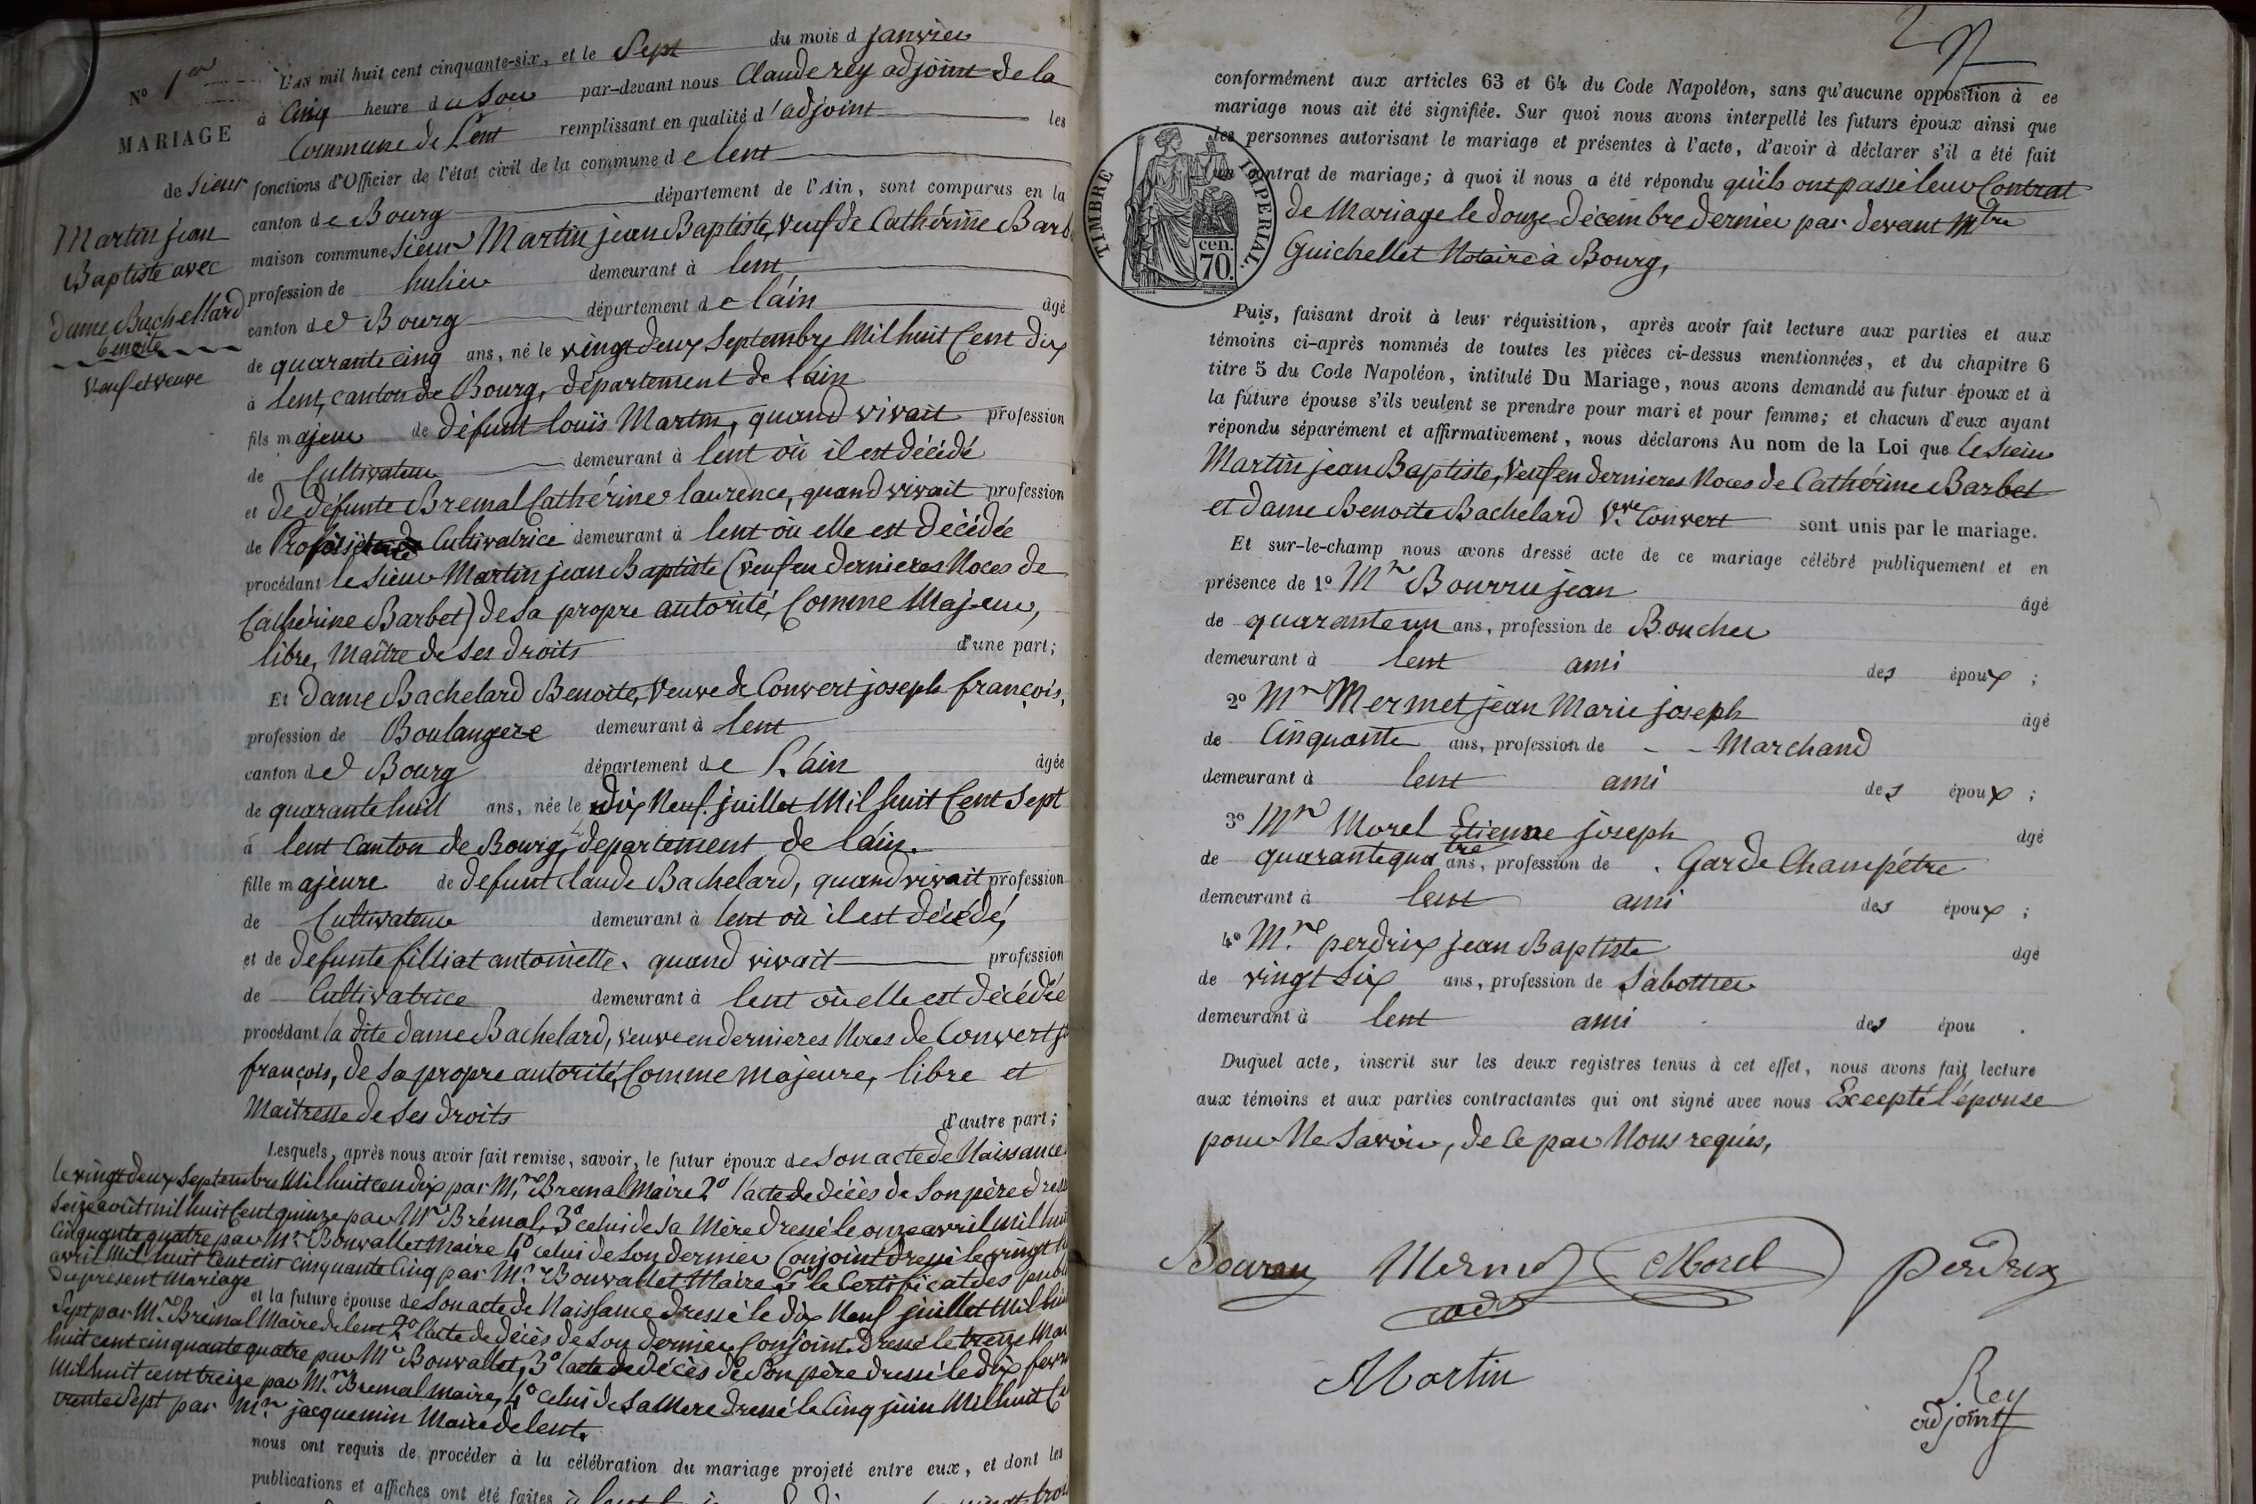 N° 1er
MARIAGE
de Sieur
Martin jean
Baptiste avec
dame Bachellard
benoite
Veuf et veuve
L'AN mil huit cent cinquante-six, et le Sept du mois d janvier
à Cinq heure du Soir par-devant nous Claude rey adjoint de la
Commune de Lent remplissant en qualité d'adjoint les
fonctions d'Officier de l'état civil de la commune de lent
canton de Bourg département de l'Ain, sont comparus en la
maison commune Sieur Martin jean Baptiste, Veuf de Cathérine Barb
profession de demeurant à lent
canton de Bourg département de l'áin âgé
de quarante cinq ans, né le vingt deux Septembre Mil huit Cent dix
à lent, canton de Bourg, département de l'áin
fils majeur de défunt louïs Martin, quand vivait profession
de Cultivateur demeurant à lent où il est décédé
et de défunte Bremal Cathérine laurence, quand vivait profession
de Cultivatrice demeurant à lent où elle est décédée
procédant le Sieur Martin jean Baptiste (Veuf en dernieres Noces de
Cathérine Barbet) de sa propre autorité, Comme Majeur,
libre, Maître de Ses droits d'une part;
Et dame Bachelard Benoite, Veuve de Convert joseph françois,
profession de Boulangere demeurant à lent
canton de Bourg département de l'áin âgée
de quarante huit ans, née le dix Neuf juillet Mil huit Cent Sept
à lent Canton de Bourg, département de l'áin.
fille majeure de défunt Claude Bachelard, quand vivait profession
de Cultivateur demeurant à lent où il est décédé,
et de défunte filliat antoinette, quand vivait profession
de Cultivatrice demeurant à lent où elle est décédée
procédant la dite dame Bachelard, veuve en dernieres Noces de Convert j
françois, de sa propre autorité, Comme majeure, libre et
Maitresse de Ses droits d'autre part;
Lesquels, après nous avoir fait remise, savoir, le futur époux de Son acte de Naissance
le vingt deux Septembre Mil huit cent dix par Mr Bremal Maire 2° l'acte de décès de Son père dressé
Seize août mil huit Cent quinze par Mr Brémal, 3° celui de sa Mère dressé le onze avril Mil huit
Cinquante quatre par Mr Bonvallet Maire 4° celui de Son dernier Conjoint dressé le vingt
avril Mil huit Cent cinquante Cinq par Mr Bonvallet Maire et le Certificat des publi
du présent Mariage
et la future épouse de Son acte de Naissance dressé le dix Neuf juillet Mil huit
Sept par Mr Brémal Maire de lent 2° l'acte de décès de Son dernier Conjoint dressé le treize Mai
huit cent cinquante quatre par Mr Bonvallet, 3° l'acte de décès de Son père dressé le dix fevr
Mil huit cent treize par Mr Bremal maire, 4° celui de Sa Mere dressé le Cinq juin Mil huit C
trente Sept par Mr jacquemin Maire de lent.
nous ont requis de procéder à la célébration du mariage projeté entre eux, et dont les
publications et affiches ont été faites à lent
2
conformément aux articles 63 et 64 du Code Napoléon, sans qu'aucune opposition à ce
mariage nous ait été signifiée. Sur quoi nous avons interpellé les futurs époux ainsi que
les personnes autorisant le mariage et présentes à l'acte, d'avoir à déclarer s'il a été fait
un contrat de mariage; à quoi il nous a été répondu qu'ils ont passé leur Contrat
de Mariage le douze décembre dernier par devant Mtre
Guichellet Notaire à Bourg,
TIMBRE IMPERIAL.
70. cen.
Puis, faisant droit à leur réquisition, après avoir fait lecture aux parties et aux
témoins ci-après nommés de toutes les pièces ci-dessus mentionnées, et du chapitre 6
titre 5 du Code Napoléon, intitulé Du Mariage, nous avons demandé au futur époux et à
la future épouse s'ils veulent se prendre pour mari et pour femme; et chacun d'eux ayant
répondu séparément et affirmativement, nous déclarons Au nom de la Loi que le Sieur
Martin jean Baptiste, Veuf en dernieres Noces de Cathérine Barbet
et dame Benoite Bachelard Vve Convert sont unis par le mariage.
Et sur-le-champ nous avons dressé acte de ce mariage célébré publiquement et en
présence de 1° Mr Bourru jean âgé
de quarante un ans, profession de Boucher
demeurant à lent ami des époux;
2° Mr Mermet jean Marie joseph âgé
de Cinquante ans, profession de Marchand
demeurant à lent ami des époux;
3° Mr Morel Etienne joseph âgé
de quarante quatre ans, profession de Garde Champétre
demeurant à lent ami des époux;
4° Mr perdrix jean Baptiste âgé
de vingt Six ans, profession de Sabottier
demeurant à lent ami des épou.
Duquel acte, inscrit sur les deux registres tenus à cet effet, nous avons fait lecture
aux témoins et aux parties contractantes qui ont signé avec nous Excepté l'épouse
pour Ne Savoir, de Ce par Nous requis,
Bourru Mermet Morel perdrix
Martin
Rey
adjoint